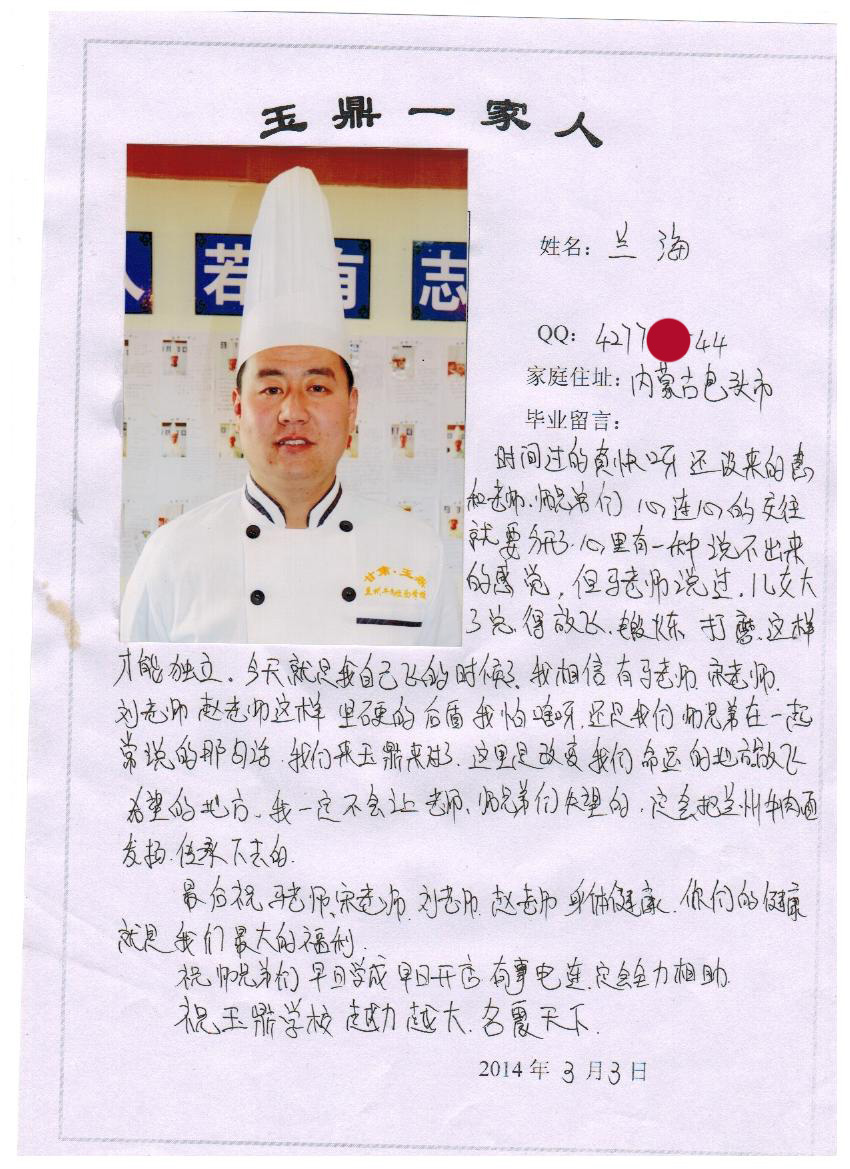 玉鼎一家人
人若有志
甘肃·玉鼎
姓名：兰海
QQ：4277 44
家庭住址：内蒙古包头市
毕业留言：
时间过的真快呀 还没来的急
和老师、师兄弟们 心连心的交往
就要分开了.心里有一种说不出来
的感觉，但马老师说过，儿女大
了总得放飞、锻炼 打磨.这样
才能独立.今天就是我自己飞的时候了.我相信有马老师.宋老师.
刘老师 赵老师这样坚硬的后盾我怕啥呀.还是我们师兄弟在一起
常说的那句话.我们来玉鼎来对了.这里是改变我们命运的地方放飞
希望的地方.我一定不会让老师、师兄弟们失望的.定会把兰州牛肉面
发扬.传承下去的.
最后祝马老师、宋老师.刘老师.赵老师身体健康.你们的健康
就是我们最大的福利.
祝师兄弟们早日学成早日开店有事电连.定会全力相助.
祝玉鼎学校越办越大.名震天下.
2014年3月3日